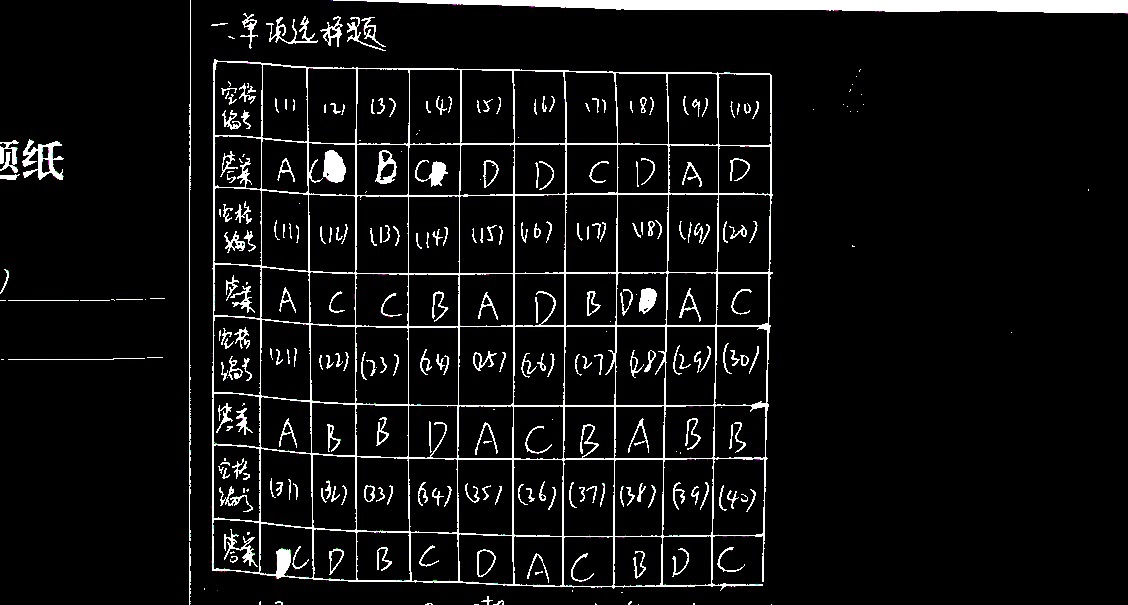 题纸
一、单项选择题
空格编号 (1) (2) (3) (4) (5) (6) (7) (8) (9) (10)
答案 A C B C D D C D A D
空格编号 (11) (12) (13) (14) (15) (16) (17) (18) (19) (20)
答案 A C C B A D B D A C
空格编号 (21) (22) (23) (24) (25) (26) (27) (28) (29) (30)
答案 A B B D A C B A B B
空格编号 (31) (32) (33) (34) (35) (36) (37) (38) (39) (40)
答案 C D B C D A C B D C